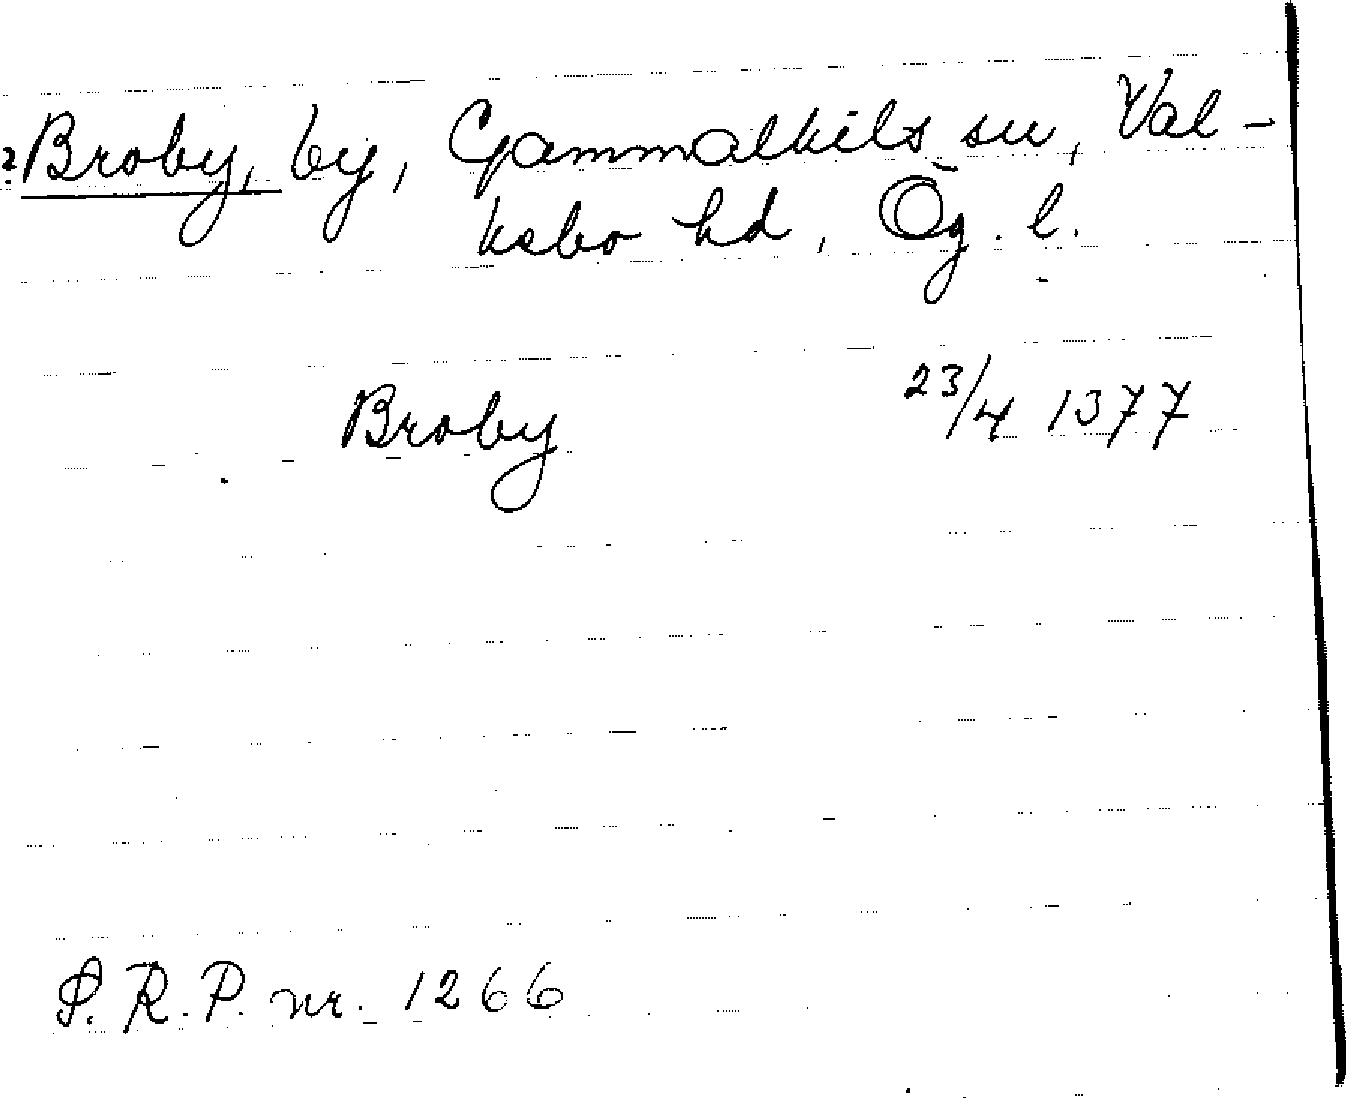 ?Broby, by, Gammalkils sn, Val-
kebo hd, Ög. l.
Broby 23/4 1377
S.R.P. nr. 1266